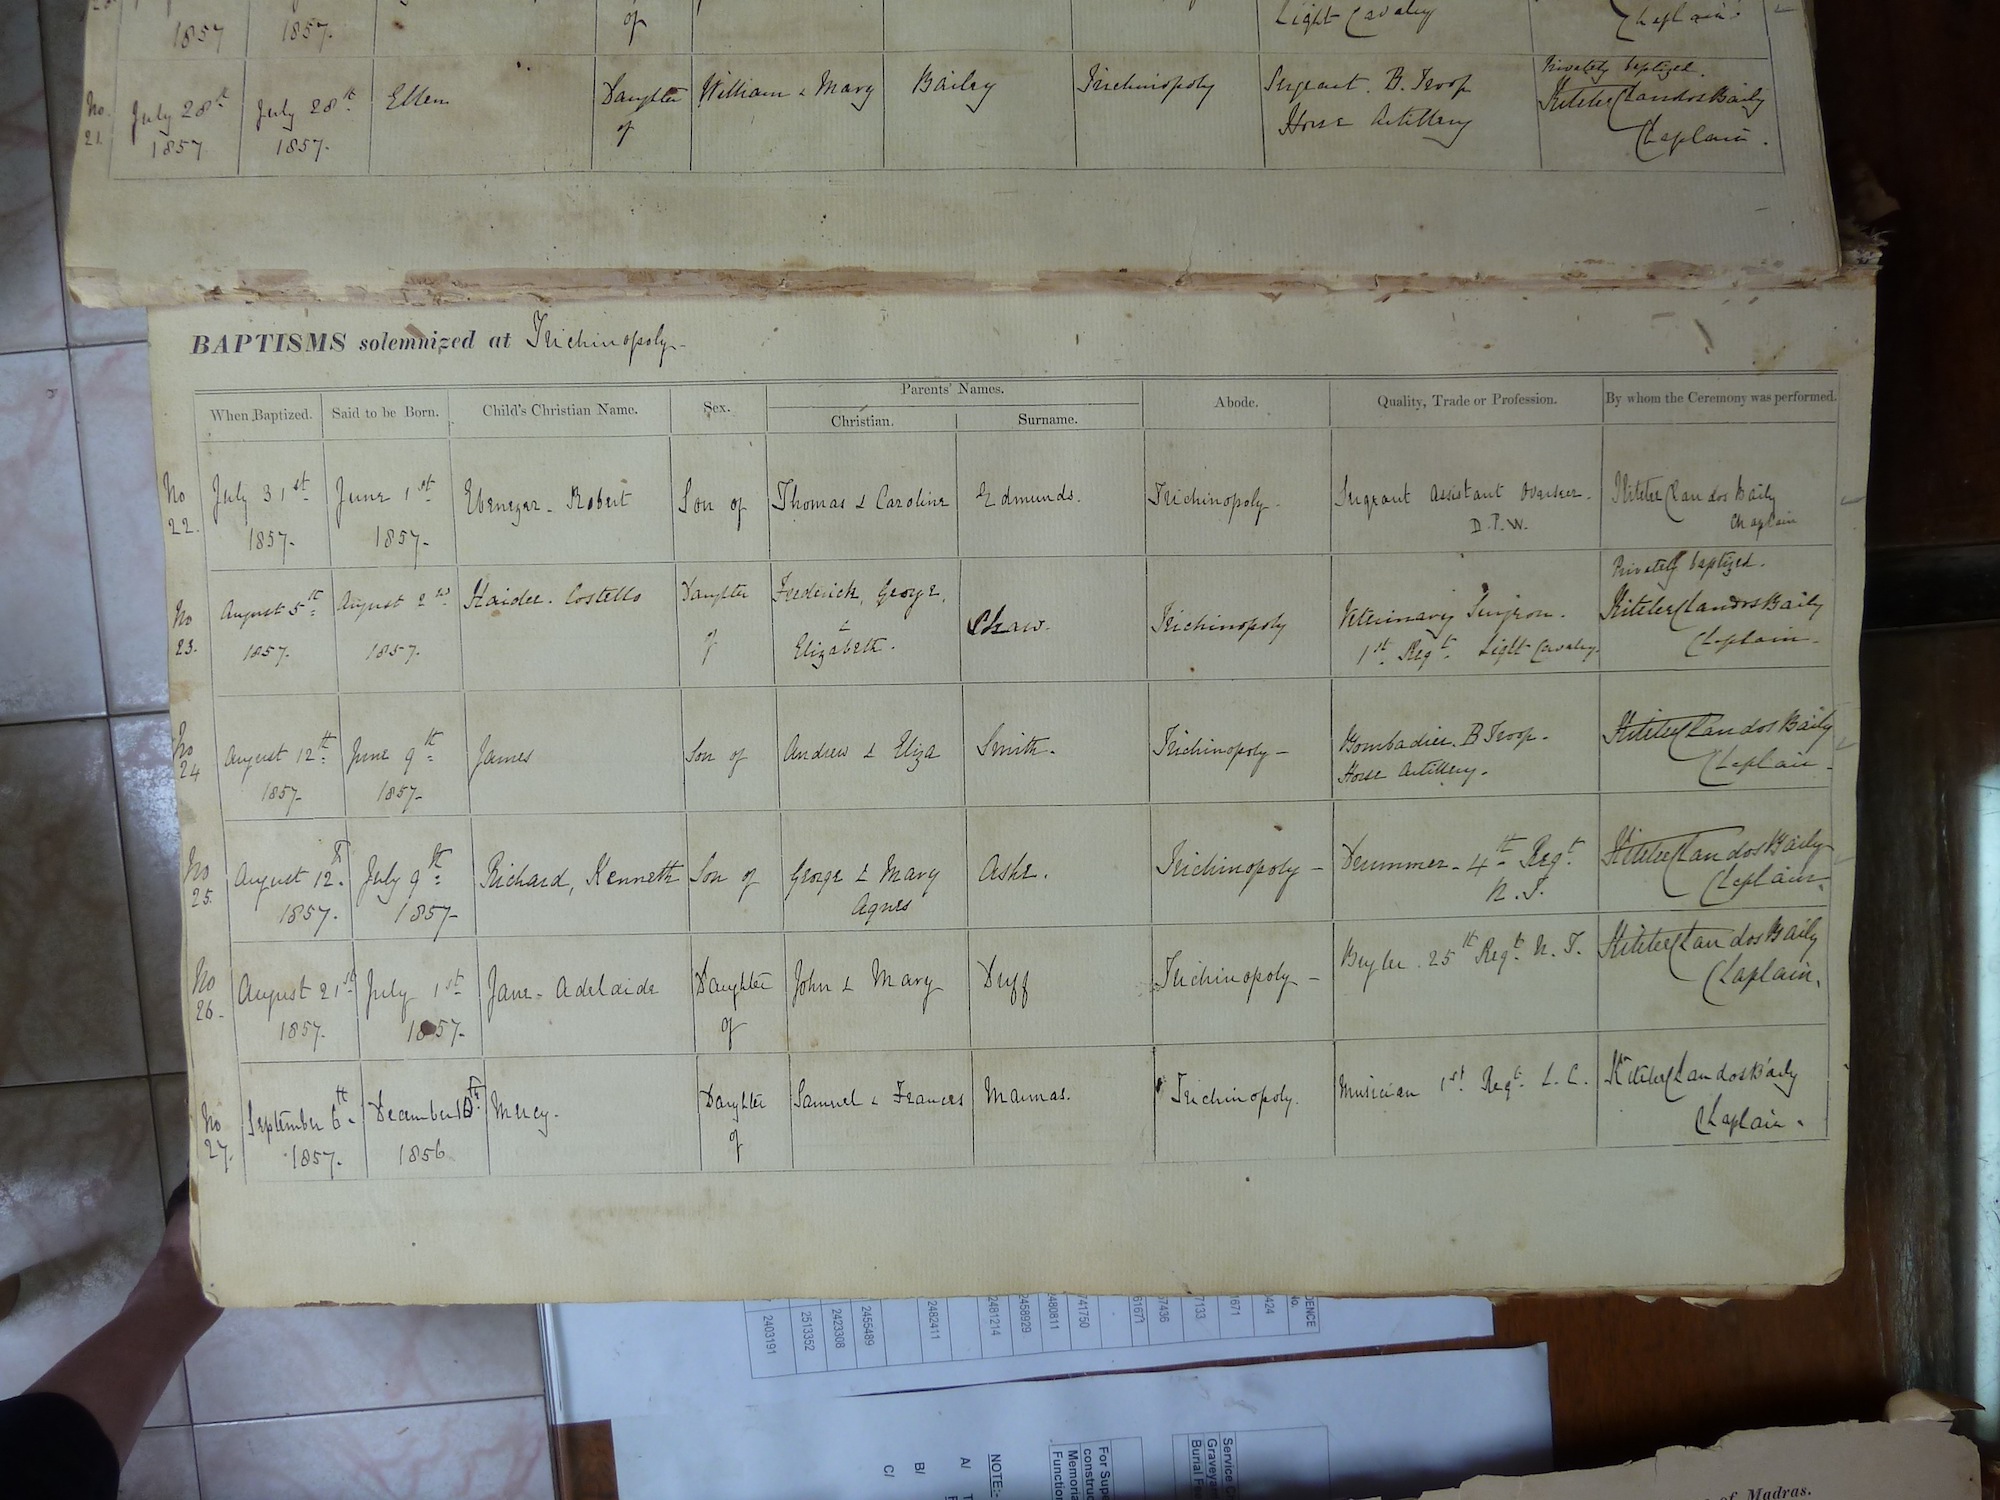 1857 1857. of Light Cavalry Chaplain
No. 21. July 28th 1857 July 28th 1857. Ellen Daughter of William & Mary Bailey Trichinopoly Sergeant. B. Troop Horse Artillery Privately baptized. Chandos Baily Chaplain.
BAPTISMS solemnized at Trichinopoly-
When Baptized. Said to be Born. Child's Christian Name. Sex. Parents' Names. Christian. Surname. Abode. Quality, Trade or Profession. By whom the Ceremony was performed.
No 22. July 31st 1857- June 1st 1857- Ebenezer- Robert Son of Thomas & Caroline Edmunds. Trichinopoly- Sergeant Assistant Overseer- D.P.W. Chandos Baily Chaplain
No 23. August 5th 1857. August 2nd 1857. Haidee- Costello Daughter of Frederick, George, & Elizabeth. Shaw. Trichinopoly Veterinary Surgeon. 1st Regt. Light Cavalry. Privately baptized. Chandos Baily Chaplain-
No 24 August 12th 1857- June 9th 1857- James Son of Andrew & Eliza Smith. Trichinopoly- Bombadier. B Troop- Horse Artillery. Chandos Baily Chaplain-
No 25. August 12th 1857. July 9th 1857- Richard, Kenneth Son of George & Mary Agnes Ashe. Trichinopoly- Drummer- 4th Regt. N.I. Chandos Baily Chaplain-
No 26- August 21st 1857. July 1st 1857- Jane- Adelaide Daughter of John & Mary Duff Trichinopoly- Bugler. 25th Regt. N. I. Chandos Baily Chaplain.
No 27. September 6th 1857. December 1856 Mercy. Daughter of Samuel & Frances Trichinopoly. Musician 1st Regt. L. C. Chandos Baily Chaplain.
2403191
2513352
2423308
2455489
2482411
2481214
2458929
480811
741750
61671
57436
7133
671
424
DENCE
No.
Service C
Graveyar
Burial Fe
For Supe
construc
Memoria
Function
NOTE:-
A/
B/
C/
of Madras.